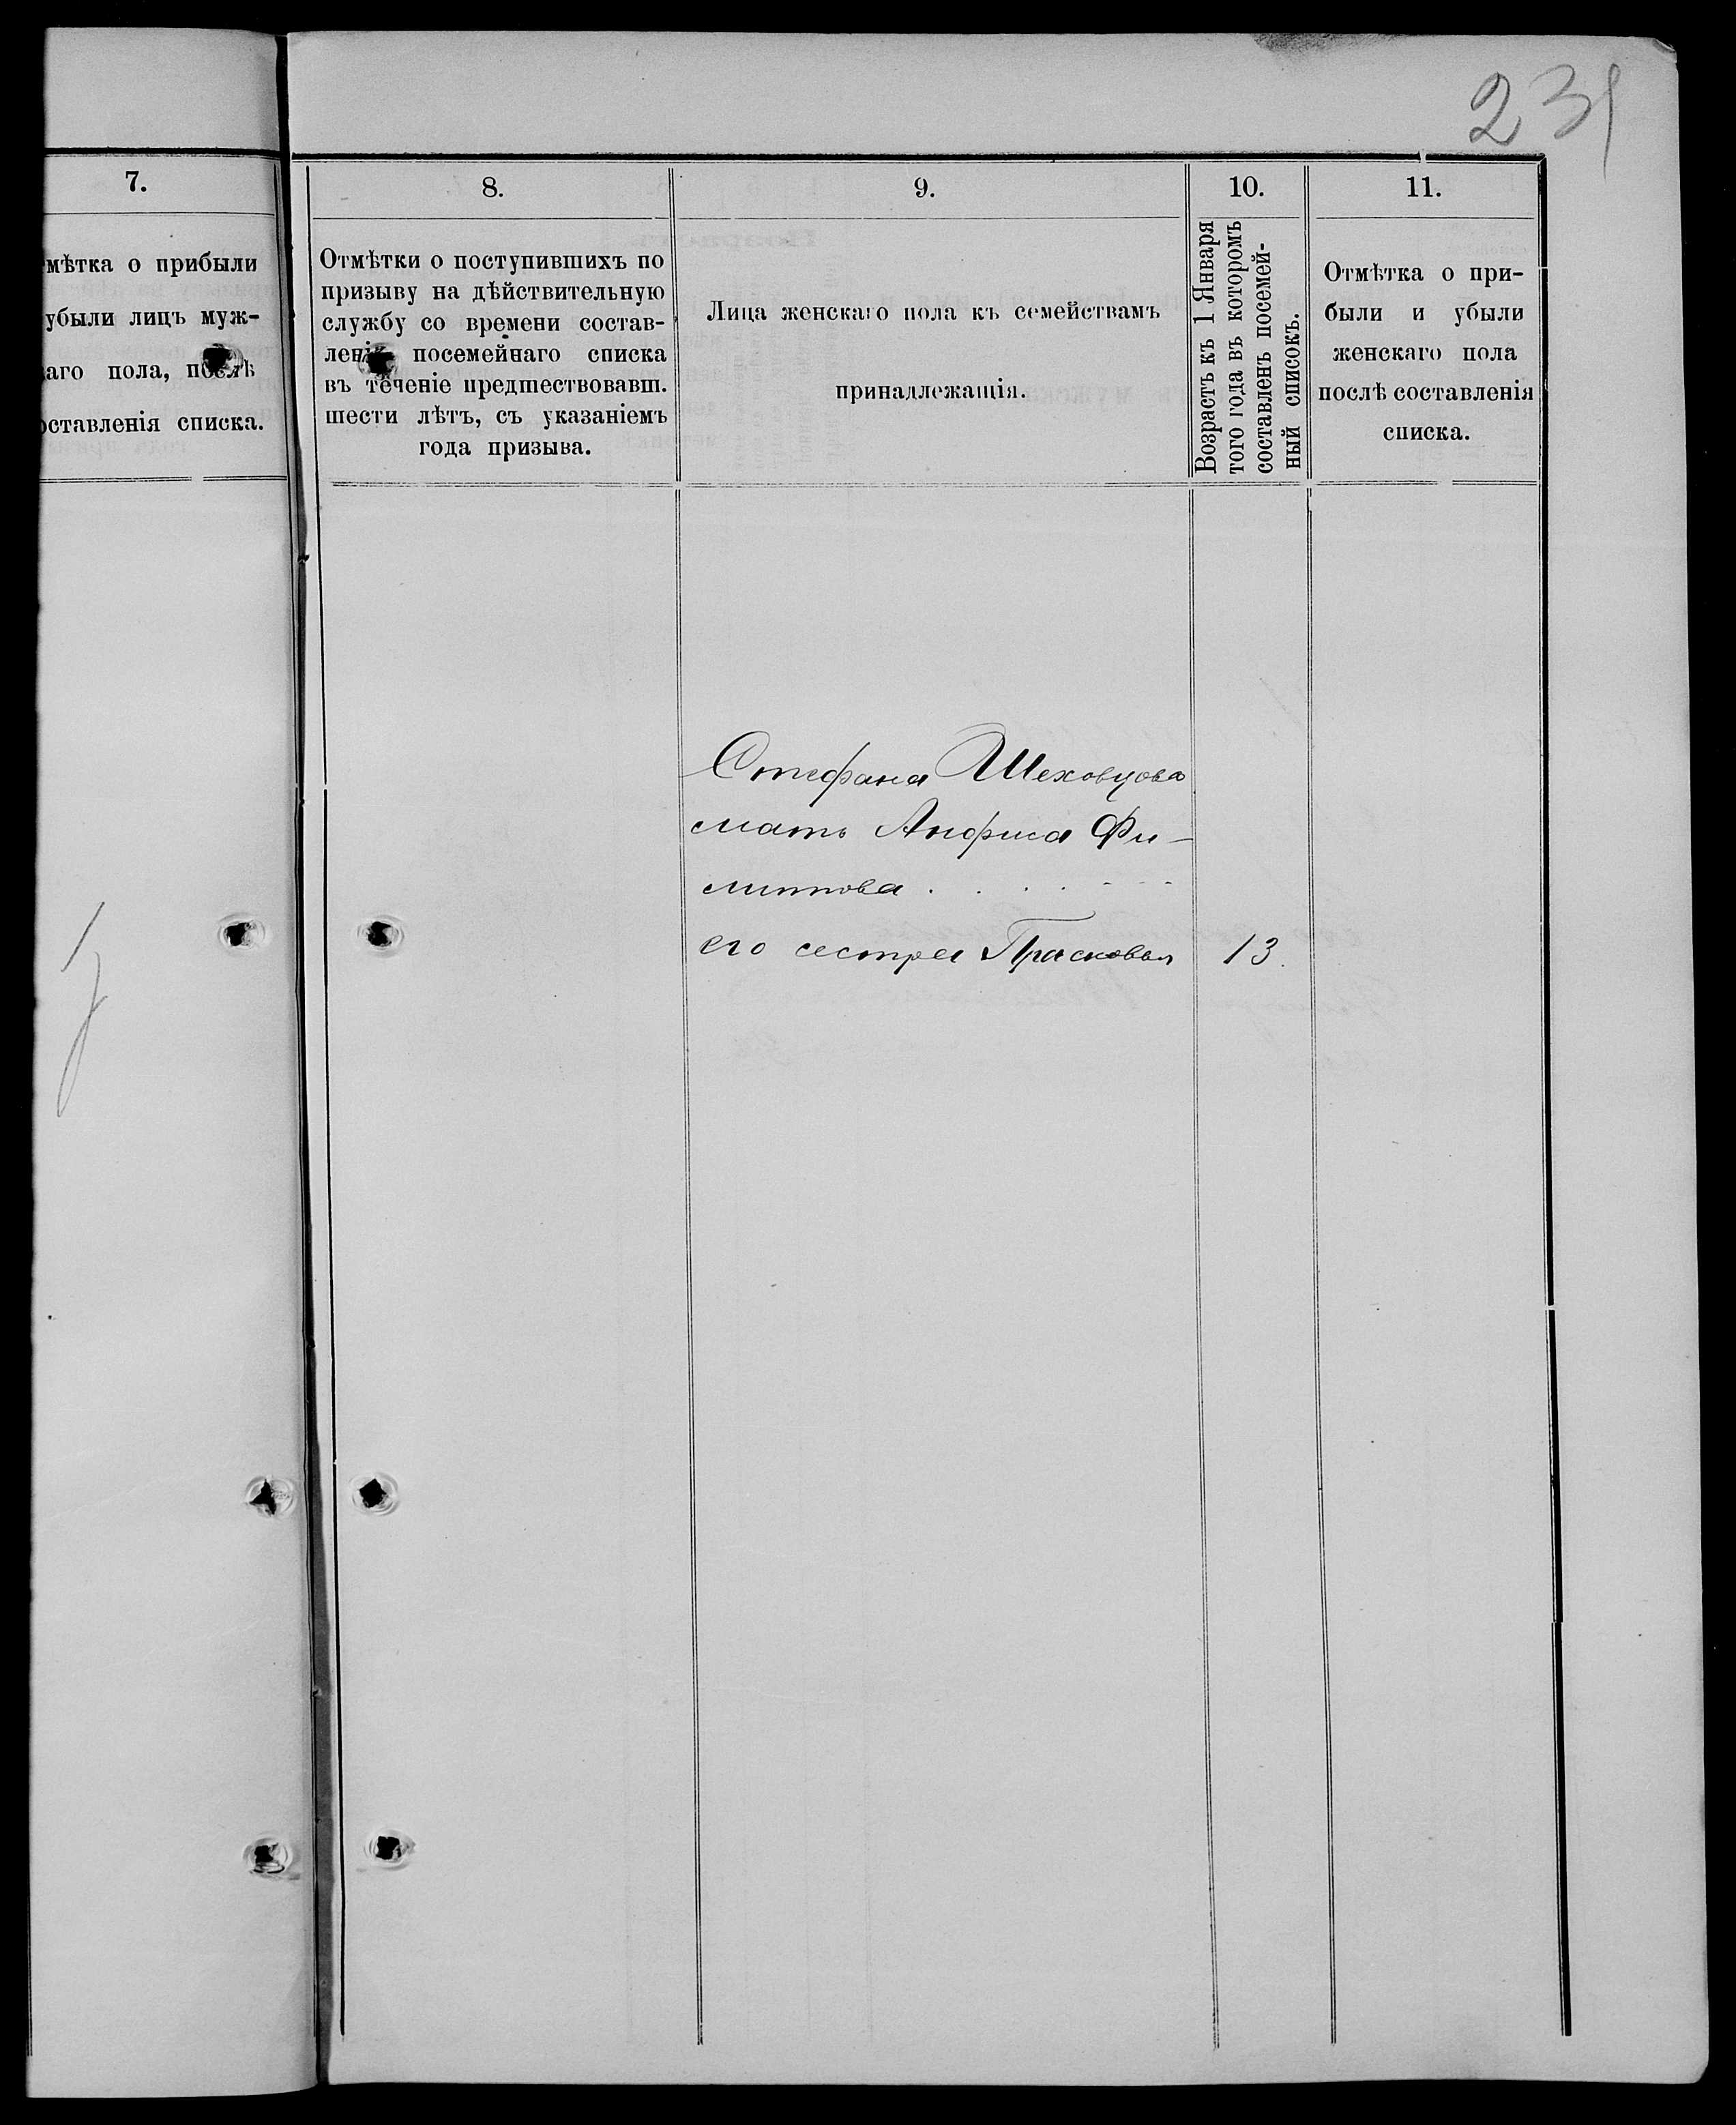 231
7.
мѣтка о прибыли
убыли лицъ муж-
аго пола, послѣ
оставленія списка.
8.
Отмѣтки о поступившихъ по
призыву на дѣйствительную
службу со времени состав-
ленія посемейнаго списка
въ теченіе предшествовавш.
шести лѣтъ, съ указаніемъ
года призыва.
9.
Лица женскаго пола къ семействамъ
принадлежащія.
10.
Возрастъ къ 1 Января
того года въ которомъ
составленъ посемей-
ный списокъ.
11.
Отмѣтка о при-
были и убыли
женскаго пола
послѣ составленія
списка.
Стефана Шеховцова
мать Анфиса Фи-
липпова . . . . - - -
его сестра Прасковья 13.